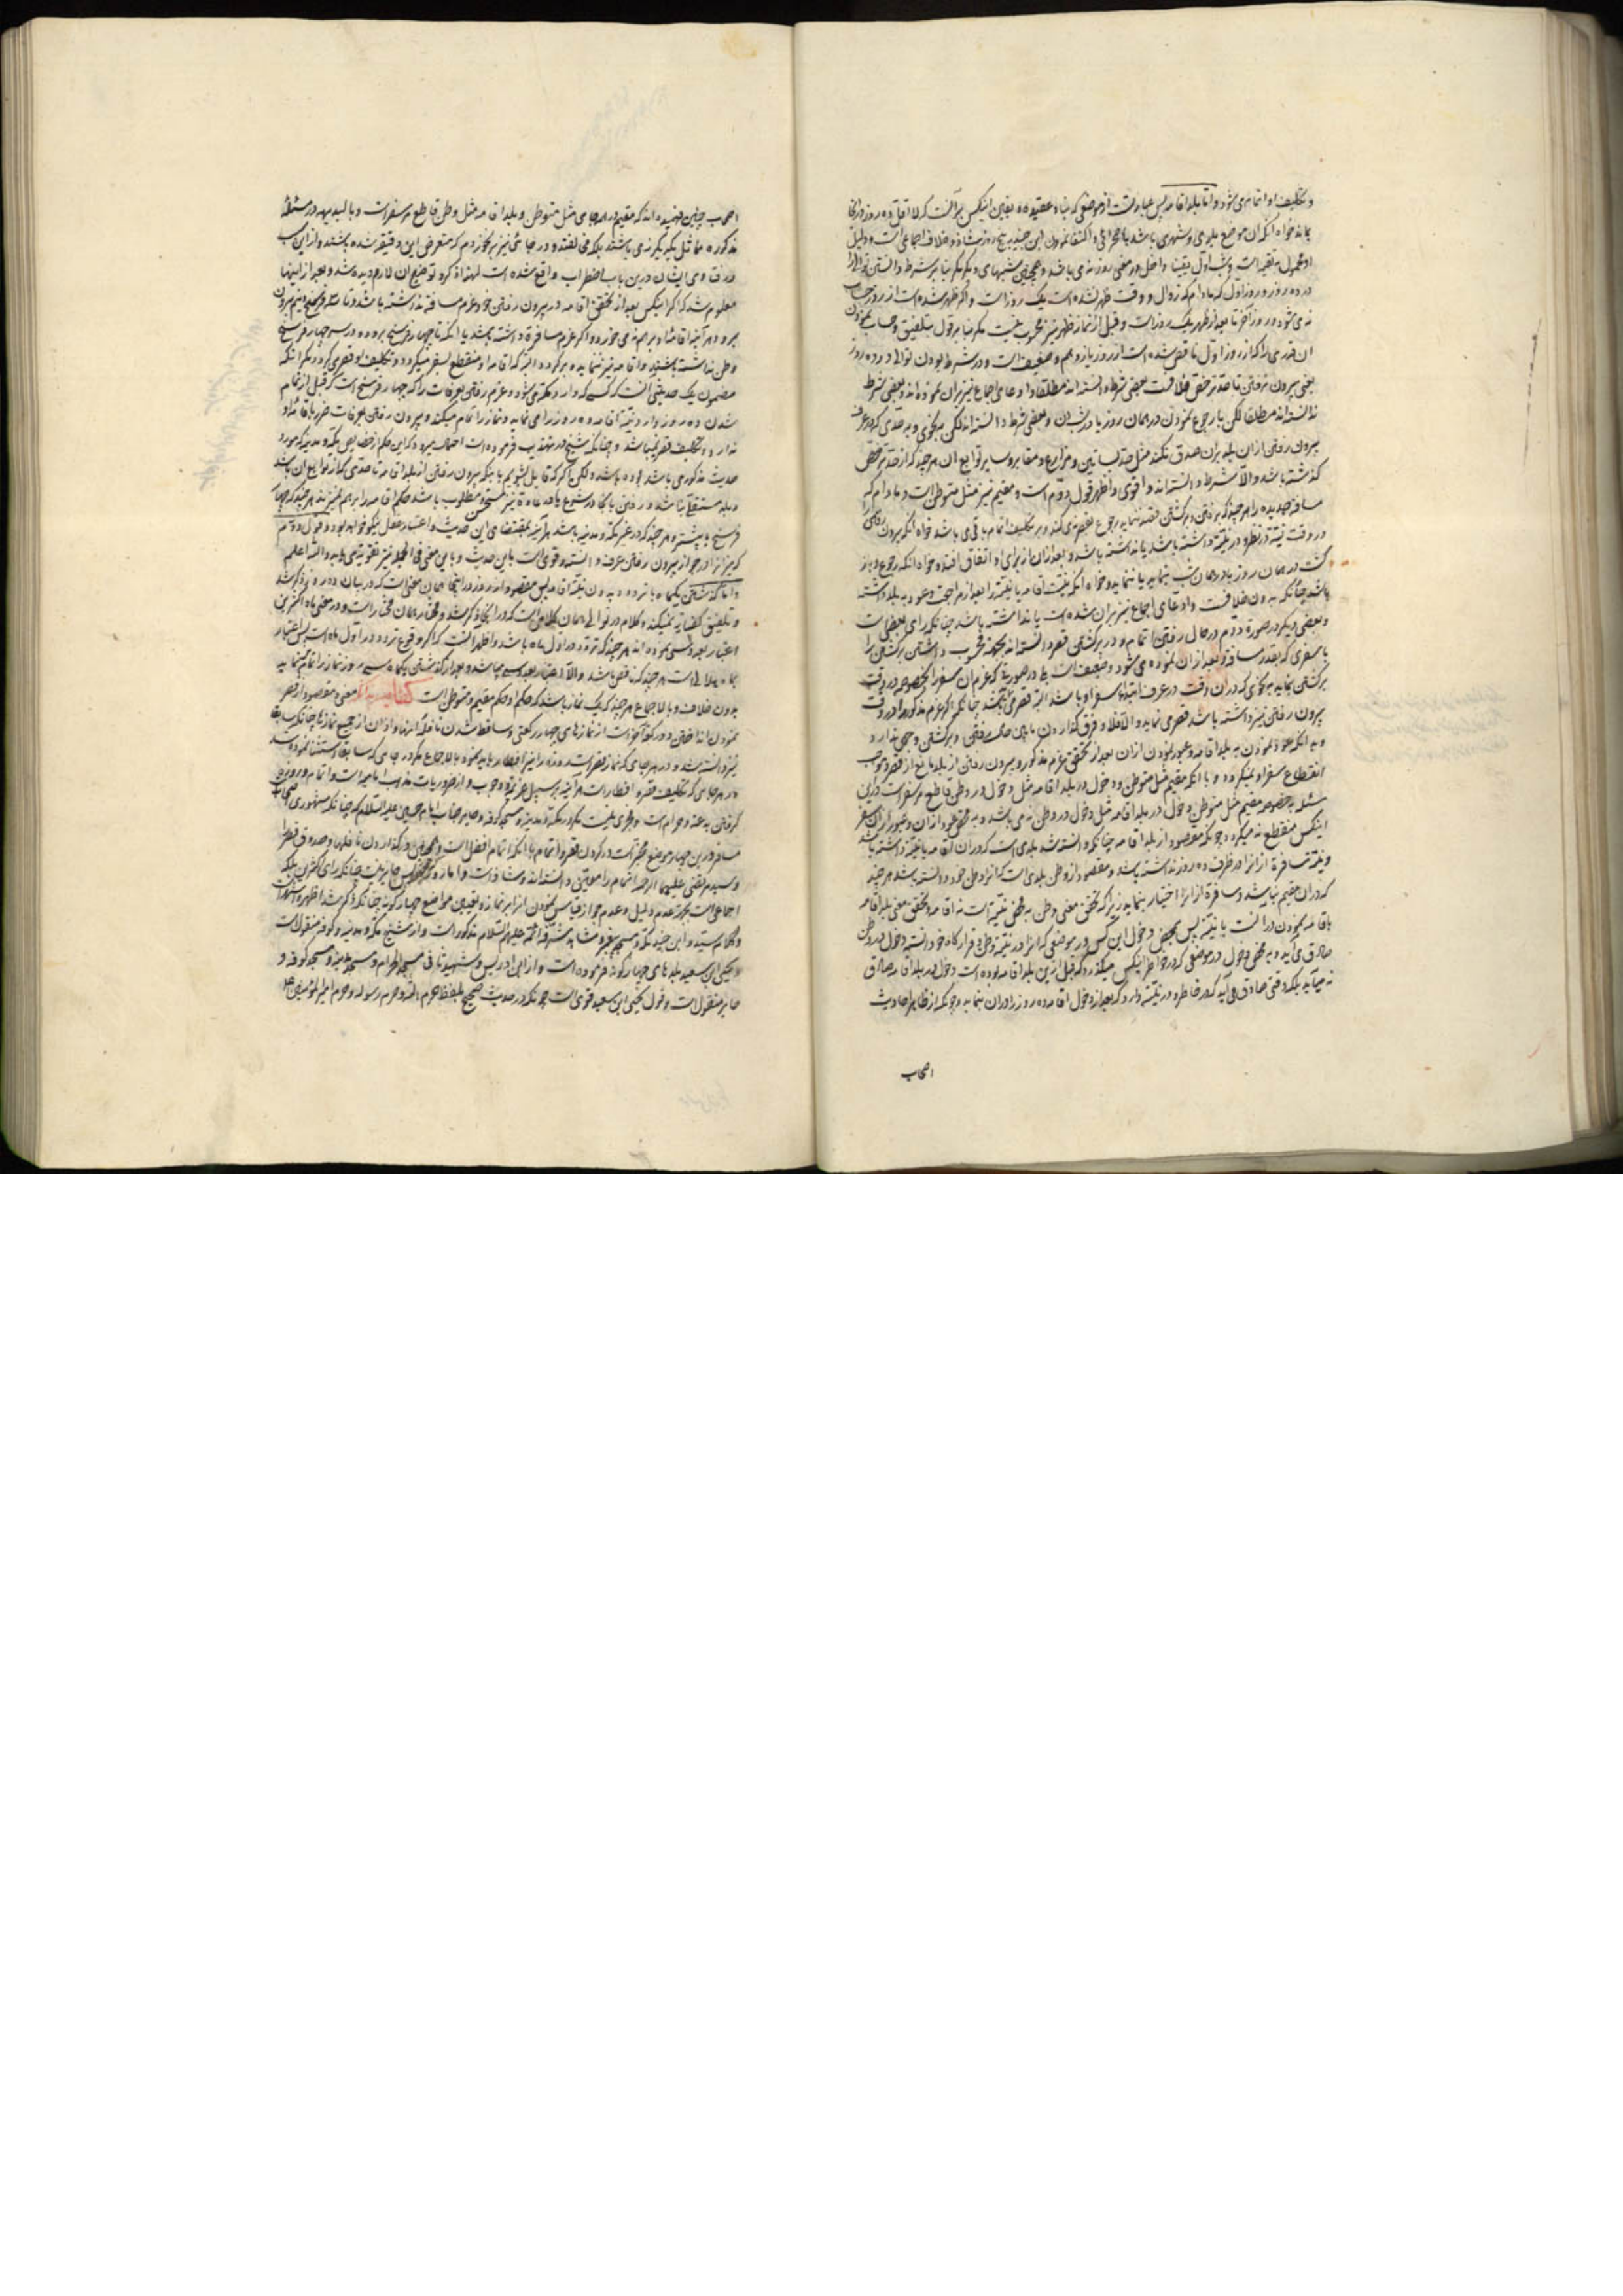 و تکلیف او اتمام می شود و اما بلد اقامه پس عبارتست از موضعی که بنا و عقیده و یقین اینکس بر آنست که لا اقل ده روز در آنجا
بماند خواه آنکه آن موضع بلدی و شهری باشد یا صحرائی و اکتفا نمودن ابن جنید به پنج روز شاذ و خلاف اجماعی است و دلیل
او محمول به تقیه است و شب اول یقینا داخل در معنی روز نمی باشد و همچنین شبهای دیگر مگر بنا بر شرط دانستن توالی را
در ده روز و روز اول که مادام که زوال و وقت ظهر نشده است یک روز است و اگر ظهر شده است از روز حساب
نمی شود و روز آخر تا بعد از ظهر یک روز است و قبل از نماز ظهر نیز محسوب نیست مگر بنا بر قول بتلفیق و حساب نمودن
آن قدری را که از روز اول ناقص شده است از روز یازدهم و ضعیف است و در شرط بودن توالی در ده روز
یعنی بیرون نرفتن تا حد ترخص خلافست بعضی شرط دانسته اند مطلقا و ادعای اجماع نیز بر آن نموده اند و بعضی شرط
ندانسته اند مطلقا لکن با رجوع نمودن در همان روز یا در شب آن و بعضی شرط دانسته اند لکن به نحوی و به حدی که در عرف
بیرون رفتن از آن بلد بر آن صدق نکند مثل حد بساتین و مزارع و مقابر و سایر توابع آن هر چند که از حد ترخص
گذشته باشد و الا شرط دانسته اند و اقوی و اظهر قول دوم است و مقیم نیز مثل متوطن است و مادام که
مسافه جدیده را هر چند که برفتن و برگشتن قصد ننماید رجوع بقصر نمی کند و بر تکلیف اتمام باقی می باشد خواه آنکه بیرون رفتن را
در وقت نیت در نظر و در نیت داشته باشد یا نداشته باشد و بعد از آن از برای او اتفاق افتد و خواه آنکه رجوع و باز
گشت در همان روز یا در همان شب بنماید یا ننماید و خواه آنکه نیت اقامه یا نیت را بعد از مراجعت و عود به بلد داشته
باشد چنانکه بدون خلافست و ادعای اجماع نیز بر آن شده است یا نداشته باشد چنانکه رای بعضی است
و بعضی دیگر در صورة دوم در حال رفتن اتمام و در برگشتن قصر دانسته اند بجهة محسوب داشتن برگشتن را
با سفری که بقدر مسافه و بعد از آن نموده می شود و ضعیف است بلی در صورتی که عزم آن سفر را بخصوصه در وقت
برگشتن بنماید به نحوی که در آن وقت در عرف ابتدای سفر او باشد البته قصر می کند چنانکه اگر عزم مذکور را در وقت
بیرون رفتن نیز داشته باشد قصر می نماید و الا فلا و فرق گذاردن ما بین حالت رفتن و برگشتن وجهی ندارد
و به آنکه عود نمودن به بلد اقامه و عبور نمودن از آن بعد از تحقق عزم مذکور و بیرون رفتن از بلد مانع از قصر و موجب
انقطاع سفر او نمیگردد و با آنکه مقیم مثل متوطن و دخول در بلد اقامه مثل دخول در وطن قاطع سفر است در این
مسئله بخصوص مقیم مثل متوطن و دخول در بلد اقامه مثل دخول در وطن نمی باشد و به محض عود از آن و عبور از آن سفر
اینکس منقطع نمیگردد چونکه مقصود از بلد اقامه چنانکه دانسته شد بلدی است که در آن اقامه یا نیت داشته باشد
و نیت مسافرة از آنرا در ظرف ده روز نداشته باشد و مقصود از وطن بلدی است که آنرا وطن خود دانسته باشد هر چند
که در آن مقیم نباشد و مسافرة از آنرا اختیار بنماید زیرا که تحقق معنی وطن به محض نیت است نه اقامه و تحقق معنی بلد اقامه
باقامه نمودن در آنست یا نیت پس بمحض دخول این کس در موضعی که آنرا در نیت وطن و قرارگاه خود دانسته دخول در وطن
صادق می آید و به محض دخول در موضعی که در خاطر اینکس میگذرد که قبل از این بلد اقامه بوده است دخول در بلد اقامه صادق
نمیآید بلکه وقتی صادق می آید که در خاطر و در نیت دارد که بعد از دخول اقامه ده روز را در آن بنماید و چونکه از ظاهر احادیث
اصحاب
اصحاب چنین فهمیده اند که مقیم در هر جای مثل متوطن و بلد اقامه مثل وطن قاطع سفر است و بالبدیهه در مسئلهٔ
مذکوره مماثل یکدیگر نمی باشند بلکه مختلفند و در جائی نیز بر نخوردم که متعرض این دقیقه شده باشند و از این سبب
در فتاوی ایشان درین باب اضطراب واقع شده است لهذا ذکر و توضیح آن لازم دیده شد و بعد از اینها
معلوم شد که اگر اینکس بعد از تحقق اقامه در بیرون رفتن خود عزم مسافه نداشته باشد و تا سه فرسخ و نیم بیرون
برود هر آینه اقامهٔ او بر هم نمی خورد و اگر عزم مسافرة داشته باشد یا آنکه تا چهار فرسخ برود و در سر چهار فرسخ
وطن نداشته باشد و اقامه نیز ننماید و برگردد البته که اقامه او منقطع بسفر میگردد و تکلیف او قصر می گردد مگر آنکه
مضمون یک حدیثی آنست که کسی که وارد مکه می شود و عزم رفتن بعرفات را که چهار فرسخ است که قبل از تمام
شدن ده روز دارد نیت اقامه ده روز را می نماید و نماز را تمام میکند و بیرون رفتن بعرفات ضرر باقامهٔ او
ندارد و تکلیف قصر نمیباشد و چنانکه شیخ در تهذیب فرموده است احتمال میرود که این حکم از خصایص مکه و مدینه که مورد
حدیث مذکور می باشد بوده باشد و لکن اگر که قایل بشویم باینکه بیرون رفتن از بلد اقامه تا حدی که از توابع آن باشد
و بلد مستقلی نباشد و رفتن بآنجا در شرع یا در عادة نیز مستحسن و مطلوب باشد حکم اقامه را بر هم نمیزند هر چند که چهار
فرسخ یا بیشتر و هر چند که در غیر مکه و مدینه باشد هر آینه بمقتضای این حدیث و اعتبار عقل نیکو خواهد بود و قول دوم
که میزان را در جواز بیرون رفتن عرف دانسته و قوی است باین حدیث و باین معنی فی الجمله نیز تقویتی می یابد و الله اعلم
و اما گذشتن یکماه با تردد و بدون نیت اقامه پس مقصود از روز در اینجا همان معنی است که در بیان ده روز ذکر شد
و تلفیق کفایه نمیکند و کلام در توالی همان کلامی است که در آنجا ذکر شد و مختار همان مختار است و در معنی ماه اکثری
اعتبار بعدد سی نموده اند هر چند که تردد در اول ماه باشد و اظهر آنست که اگر وقوع تردد در اول ماه است پس اعتبار
بماه هلالی است هر چند که ناقص باشد و الا اعتبار بعدد سی میباشد و بعد از گذشتن یکماه سی روز نماز را تمام مینماید
بدون خلاف و بالاجماع هر چند که یک نماز باشد که حکم او حکم مقیم و متوطن است معنی و مقصود از قصر
نمودن انداختن دو رکعة آخر است از نمازهای چهار رکعتی و ساقط شدن نافلهٔ آنها و اذان از جمیع نمازها چنانکه سابقا
نیز دانسته شد و در هر جای که نماز قصر است روزه را نیز افطار باید نمود بالاجماع مگر در جای که سابقا استثنا نموده شد
و در هر جای که تکلیف قصر و افطار است هر آینه بر سبیل عزیمة و وجوب و از ضروریات مذهب امامیه است و اتمام و روزه
گرفتن بدعت و حرام است و مجزی نیست مگر در مکه و مدینه و مسجد کوفه و حایر جناب امام حسین علیه السلام که چنانکه مشهوری اصحاب
مسافر در این چهار موضع مخیر است در کردن قصر و اتمام با آنکه اتمام افضل است و همچنین در گذاردن نافلهٔ و صدوق قصر را
و سید مرتضی علیهما الرحمه اتمام را متعین دانسته اند و شاذ است و اما روزه گرفتن پس جایز نیست چنانکه رای اکثری بلکه
اجماعی است بجهة عدم دلیل و عدم جواز قیاس نمودن آنرا بر نماز و تعیین مواضع چهارگونه چنانکه ذکر شد اظهر و اشهر است
و کلام سید و ابن جنید مکه و مسجد پیغمبر و مشاهد مشرفهٔ ائمه علیهم السلام مذکور است و از شیخ مکه و مدینه و کوفه منقول است
و یحیی ابن سعید بلدهای چهارگونه فرموده است و از ابن ادریس و شهید ثانی مسجد الحرام و مسجد مدینه و مسجد کوفه و
حایر منقول است و قول یحیی ابن سعید قوی است چونکه در حدیث صحیح بلفظ حرم الله و حرم رسوله و حرم امیر المؤمنین